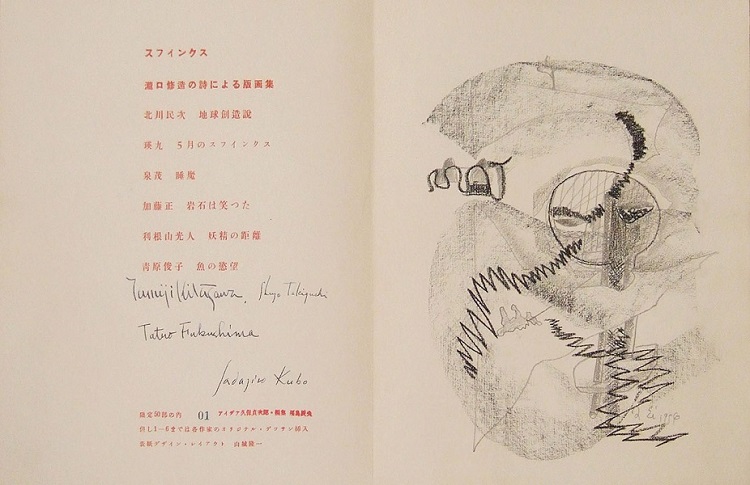 スフインクス
瀧口修造の詩による版画集
北川民次 地球創造說
瑛九 5月のスフインクス
泉茂 睡魔
加藤正 岩石は笑つた
利根山光人 妖精の距離
青原俊子 魚の慾望
Tamiji Kitagawa. Shuzo Takiguchi
Tatuo Fukushima
Sadajiro Kubo
限定50部の内 01 アイデア久保貞次郎・編集 福島辰夫
但し1-6までは各作家のオリジナル・デツサン挿入
装幀デザイン・レイアウト 山城隆一
Ei 1958